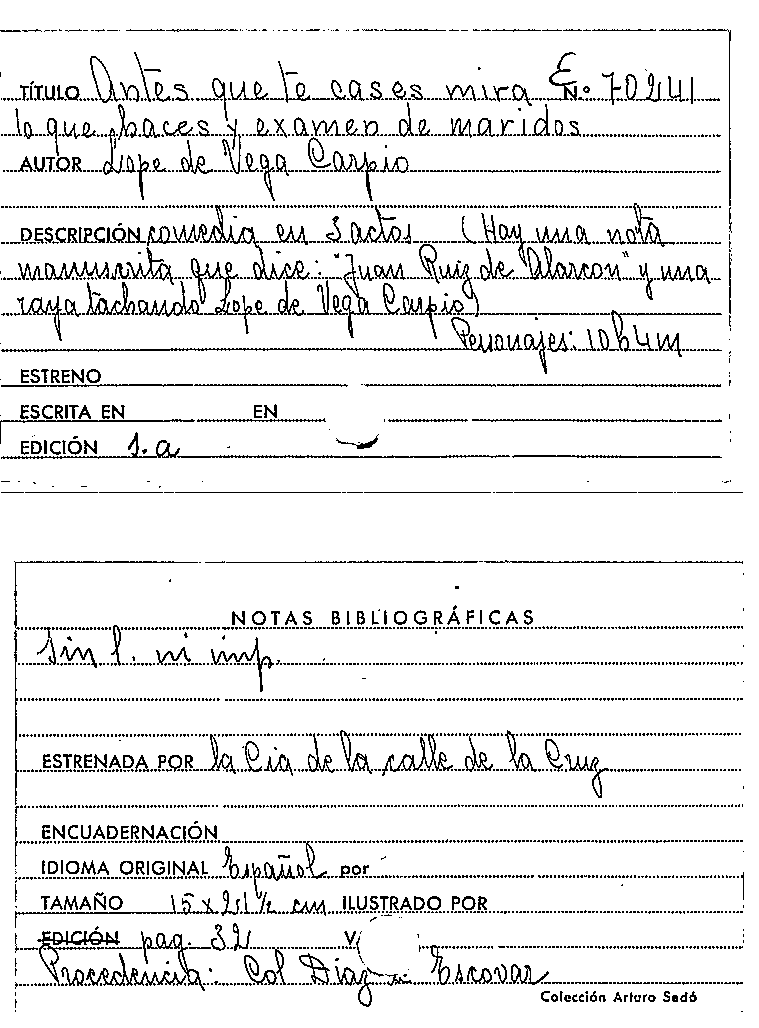 TÍTULO Antes que te cases mira E Nº 70241
lo que haces y examen de maridos
AUTOR Lope de Vega Carpio
DESCRIPCIÓN comedia en 3 actos (Hay una nota
manuscrita que dice: "Juan Ruiz de Alarcon" y una
raya tachando Lope de Vega Carpio)
Personajes: 10h4m
ESTRENO
ESCRITA EN EN
EDICIÓN 1.a
NOTAS BIBLIOGRÁFICAS
Sin l. ni imp.
ESTRENADA POR la Cia de la calle de la Cruz
ENCUADERNACIÓN
IDIOMA ORIGINAL Español por
TAMAÑO 15 x 21½ cm ILUSTRADO POR
EDICIÓN pag. 32
Procedencia: Col Diaz Escovar
Colección Arturo Sedó